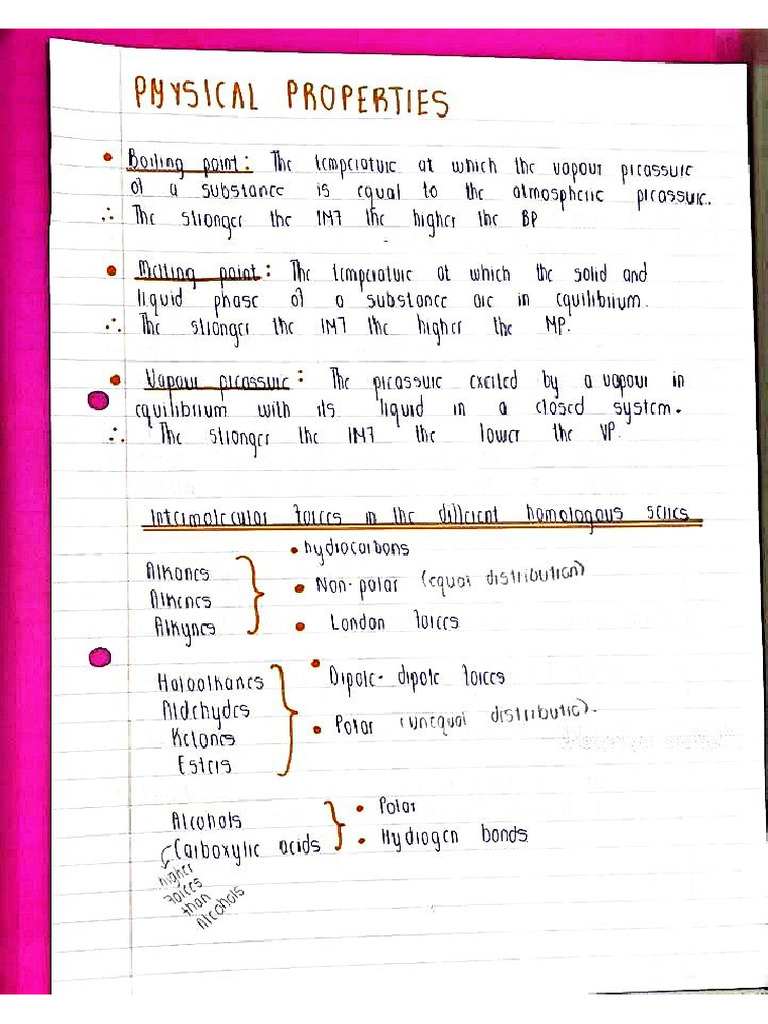 PHYSICAL PROPERTIES
• Boiling point: The temperature at which the vapour preassure
of a substance is equal to the atmospheric preassure.
∴ The stronger the IMF the higher the BP
• Melting point: The temperature at which the solid and
liquid phase of a substance are in equilibrium.
∴ The stronger the IMF the higher the MP.
• Vapour preassure: The preassure exerted by a vapour in
equilibrium with its liquid in a closed system.
∴ The stronger the IMF the lower the VP.
Intermolecular forces in the different homologous series
• hydrocarbons
Alkanes
• Non-polar (equal distribution)
Alkenes
Alkynes
• London forces
Haloalkanes
• Dipole-dipole forces
Aldehydes
• Polar (unequal distributio).
Ketones
Esters
Alcohols
• Polar
Carboxylic acids
• Hydrogen bonds
higher
forces
than
Alcohols